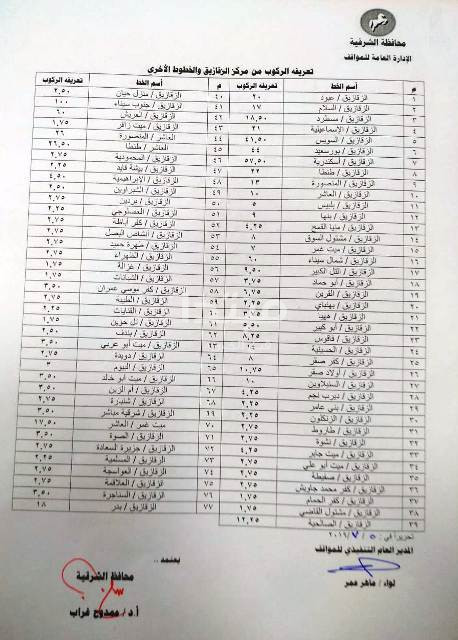 محافظة الشرقية
الإدارة العامة للمواقف
تعريفه الركوب من مركز الزقازيق والخطوط الأخرى
م أسم الخط تعريفه الركوب م أسم الخط تعريفه الركوب
١ الزقازيق / عبود ٢٠ ٤٠ الزقازيق / منزل حيان ٢,٥٠
٢ الزقازيق / السلام ١٧ ٤١ الزقازيق / جنوب سيناء ١٠٠
٣ الزقازيق / مسطرد ١٨,٥٠ ٤٢ الزقازيق / العريش ٦٠
٤ الزقازيق / الإسماعيلية ٢١ ٤٣ الزقازيق / ميت زافر ١,٧٥
٥ الزقازيق / السويس ٤١,٥٠ ٤٤ العاشر / المنصورة ٢٦
٦ الزقازيق / بورسعيد ٤٤ ٤٥ العاشر / طنطا ٢٦,٥٠
٧ الزقازيق / أسكندرية ٥٧,٥٠ ٤٦ الزقازيق / المحمودية ٢,٧٥
٨ الزقازيق / طنطا ٢٢ الزقازيق / بيشة قايد ٢,٧٥
٩ الزقازيق / المنصورة ١٣ ٤٨ الزقازيق / الإبراهيمية ٤,٥٠
١٠ الزقازيق / العاشر ١٠ ٤٩ الزقازيق / الشبراوين ٢,٥٠
١١ الزقازيق / بلبيس ٥ ٥٠ الزقازيق / بردين ٢,٧٥
١٢ الزقازيق / بنها ٩ ٥١ الزقازيق / العصلوجي ٢,٧٥
١٣ الزقازيق / منيا القمح ٤,٢٥ ٥٢ الزقازيق / كفر أباظة ٢,٧٥
١٤ الزقازيق / مشتول السوق ٨ ٥٣ الزقازيق / انشاص البصل ٢,٧٥
١٥ الزقازيق / ميت غمر ٧ ٥٤ الزقازيق / شهرة حميد ٢,٧٥
١٦ الزقازيق / شمال سيناء ٦٠ ٥٥ الزقازيق / الطهراء ٢,٧٥
١٧ الزقازيق / التل الكبير ٩,٥٠ ٥٦ الزقازيق / غزالة ٢,٧٥
١٨ الزقازيق / أبو حماد ٣,٧٥ ٥٧ الزقازيق / الشبانات ١,٧٥
١٩ الزقازيق / القرين ٦,٧٥ ٥٨ الزقازيق / كفر موسى عمران ٣,٥٠
٢٠ الزقازيق / بهنباي ٢,٢٥ ٥٩ الزقازيق / الطيبة ٢,٧٥
٢١ الزقازيق / ههيا ٣,٧٥ ٦٠ الزقازيق / القنايات ٢,٢٥
٢٢ الزقازيق / أبو كبير ٥,٥٠ ٦١ الزقازيق / تل حوين ٢,٧٥
٢٣ الزقازيق / فاقوس ٨,٢٥ ٦٢ الزقازيق / بندف ٢,٥٠
٢٤ الزقازيق / الحسينية ٦٣ الزقازيق / ميت أبو عربي ٣,٥٠
٢٥ الزقازيق / كفر صقر ٨ ٦٤ الزقازيق / دويدة ٢,٧٥
٢٦ الزقازيق / أولاد صقر ١٠,٧٥ ٦٥ الزقازيق / ٣
٢٧ الزقازيق / السنبلاوين ١٠ ٦٦ الزقازيق / ميت ابو خالد ٣,٥٠
٢٨ الزقازيق / ديرب نجم ٤,٢٥ ٦٧ الزقازيق / أم الزين ٢,٧٥
٢٩ الزقازيق / بني عامر ٢,٢٥ ٦٨ الزقازيق / شنبارة ٢,٧٥
٣٠ الزقازيق / الزنكلون ٢,٢٥ ٦٩ الزقازيق / شرقية مباشر ٣,٥٠
٣١ الزقازيق / طاروط ٢,٧٥ ٧٠ ميت غمر / العاشر ١٧,٥٠
٣٢ الزقازيق / نشوة ٢,٧٥ ٧١ الزقازيق / الصوة ٣,٥٠
٣٣ الزقازيق / ميت جابر ٤,٢٥ ٧٢ الزقازيق / جزيرة السعادة ٢,٧٥
٣٤ الزقازيق / ميت أبو علي ٢,٧٥ ٧٣ الزقازيق / المسلمية ٢,٧٥
٣٥ الزقازيق / صفيطة ٢,٧٥ ٧٤ الزقازيق / العواسجة ٢,٧٥
٣٦ الزقازيق / كفر محمد جاويش ٢,٧٥ ٧٥ الزقازيق / العلاقمة ٢,٧٥
٣٧ الزقازيق / كفر الحمام ١,٧٥ ٧٦ الزقازيق / السناجرة ٣,٥٠
٣٨ الزقازيق / مشتول القاضي ٢,٧٥ ٧٧ الزقازيق / بدر ١٨
٣٩ الزقازيق / الصالحية ١٢,٢٥
تحريرا في : ٥ / ٧ / ٢٠١٩
المدير العام التنفيذي للمواقف
لواء / ماهر عمر
يعتمد ،،
محافظ الشرقية
أ.د / ممدوح غراب